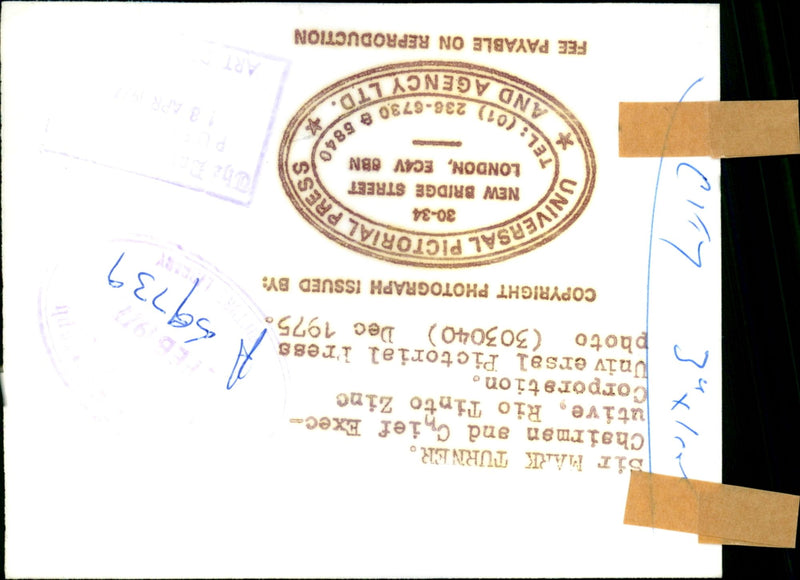 Sir MARK TURNER.
Chairman and Chief Exec-
utive, Rio Tinto Zinc
Corporation.
Universal Pictorial Press
photo (303040) Dec 1975.
COPYRIGHT PHOTOGRAPH ISSUED BY:
UNIVERSAL PICTORIAL PRESS
★ AND AGENCY LTD. ★
30-34
NEW BRIDGE STREET
LONDON, EC4V 6BN
TEL: (01) 236-6730 & 5840
FEE PAYABLE ON REPRODUCTION
A 59739
FEB 1977
The
18 APR
ART
City